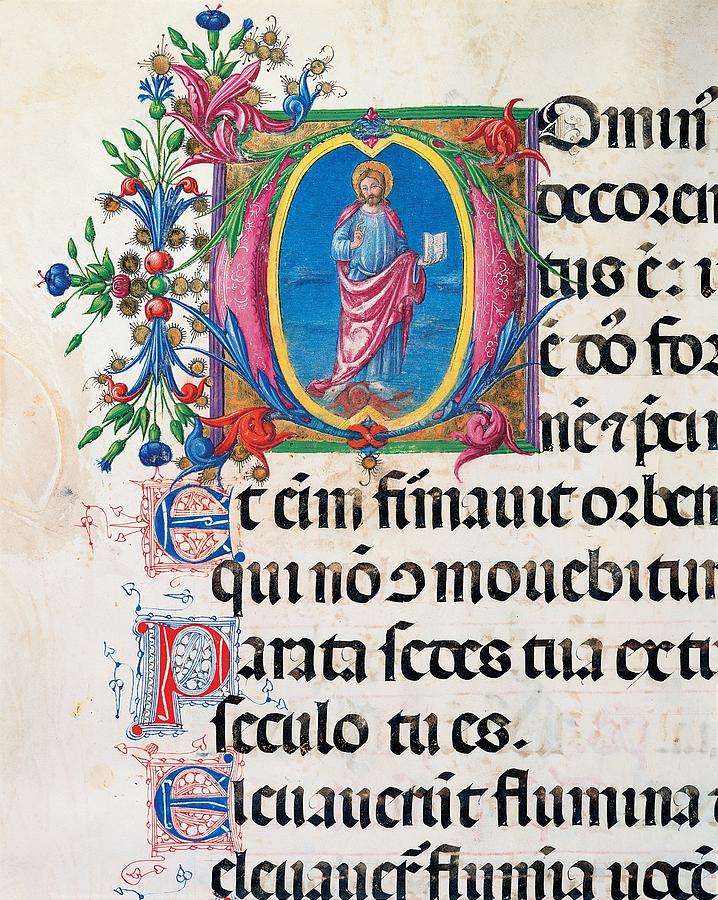 DOmin᾽
decorem
tus ē: i
ē dōo for
nē ⁊ p̄cin
Et eīm firmauit orbem
qui nō ɔmouebitur
Parata sedes tua ex tu
seculo tu es.
Eleuauerūt flumina
eleuauer᾽t flumīa uocē